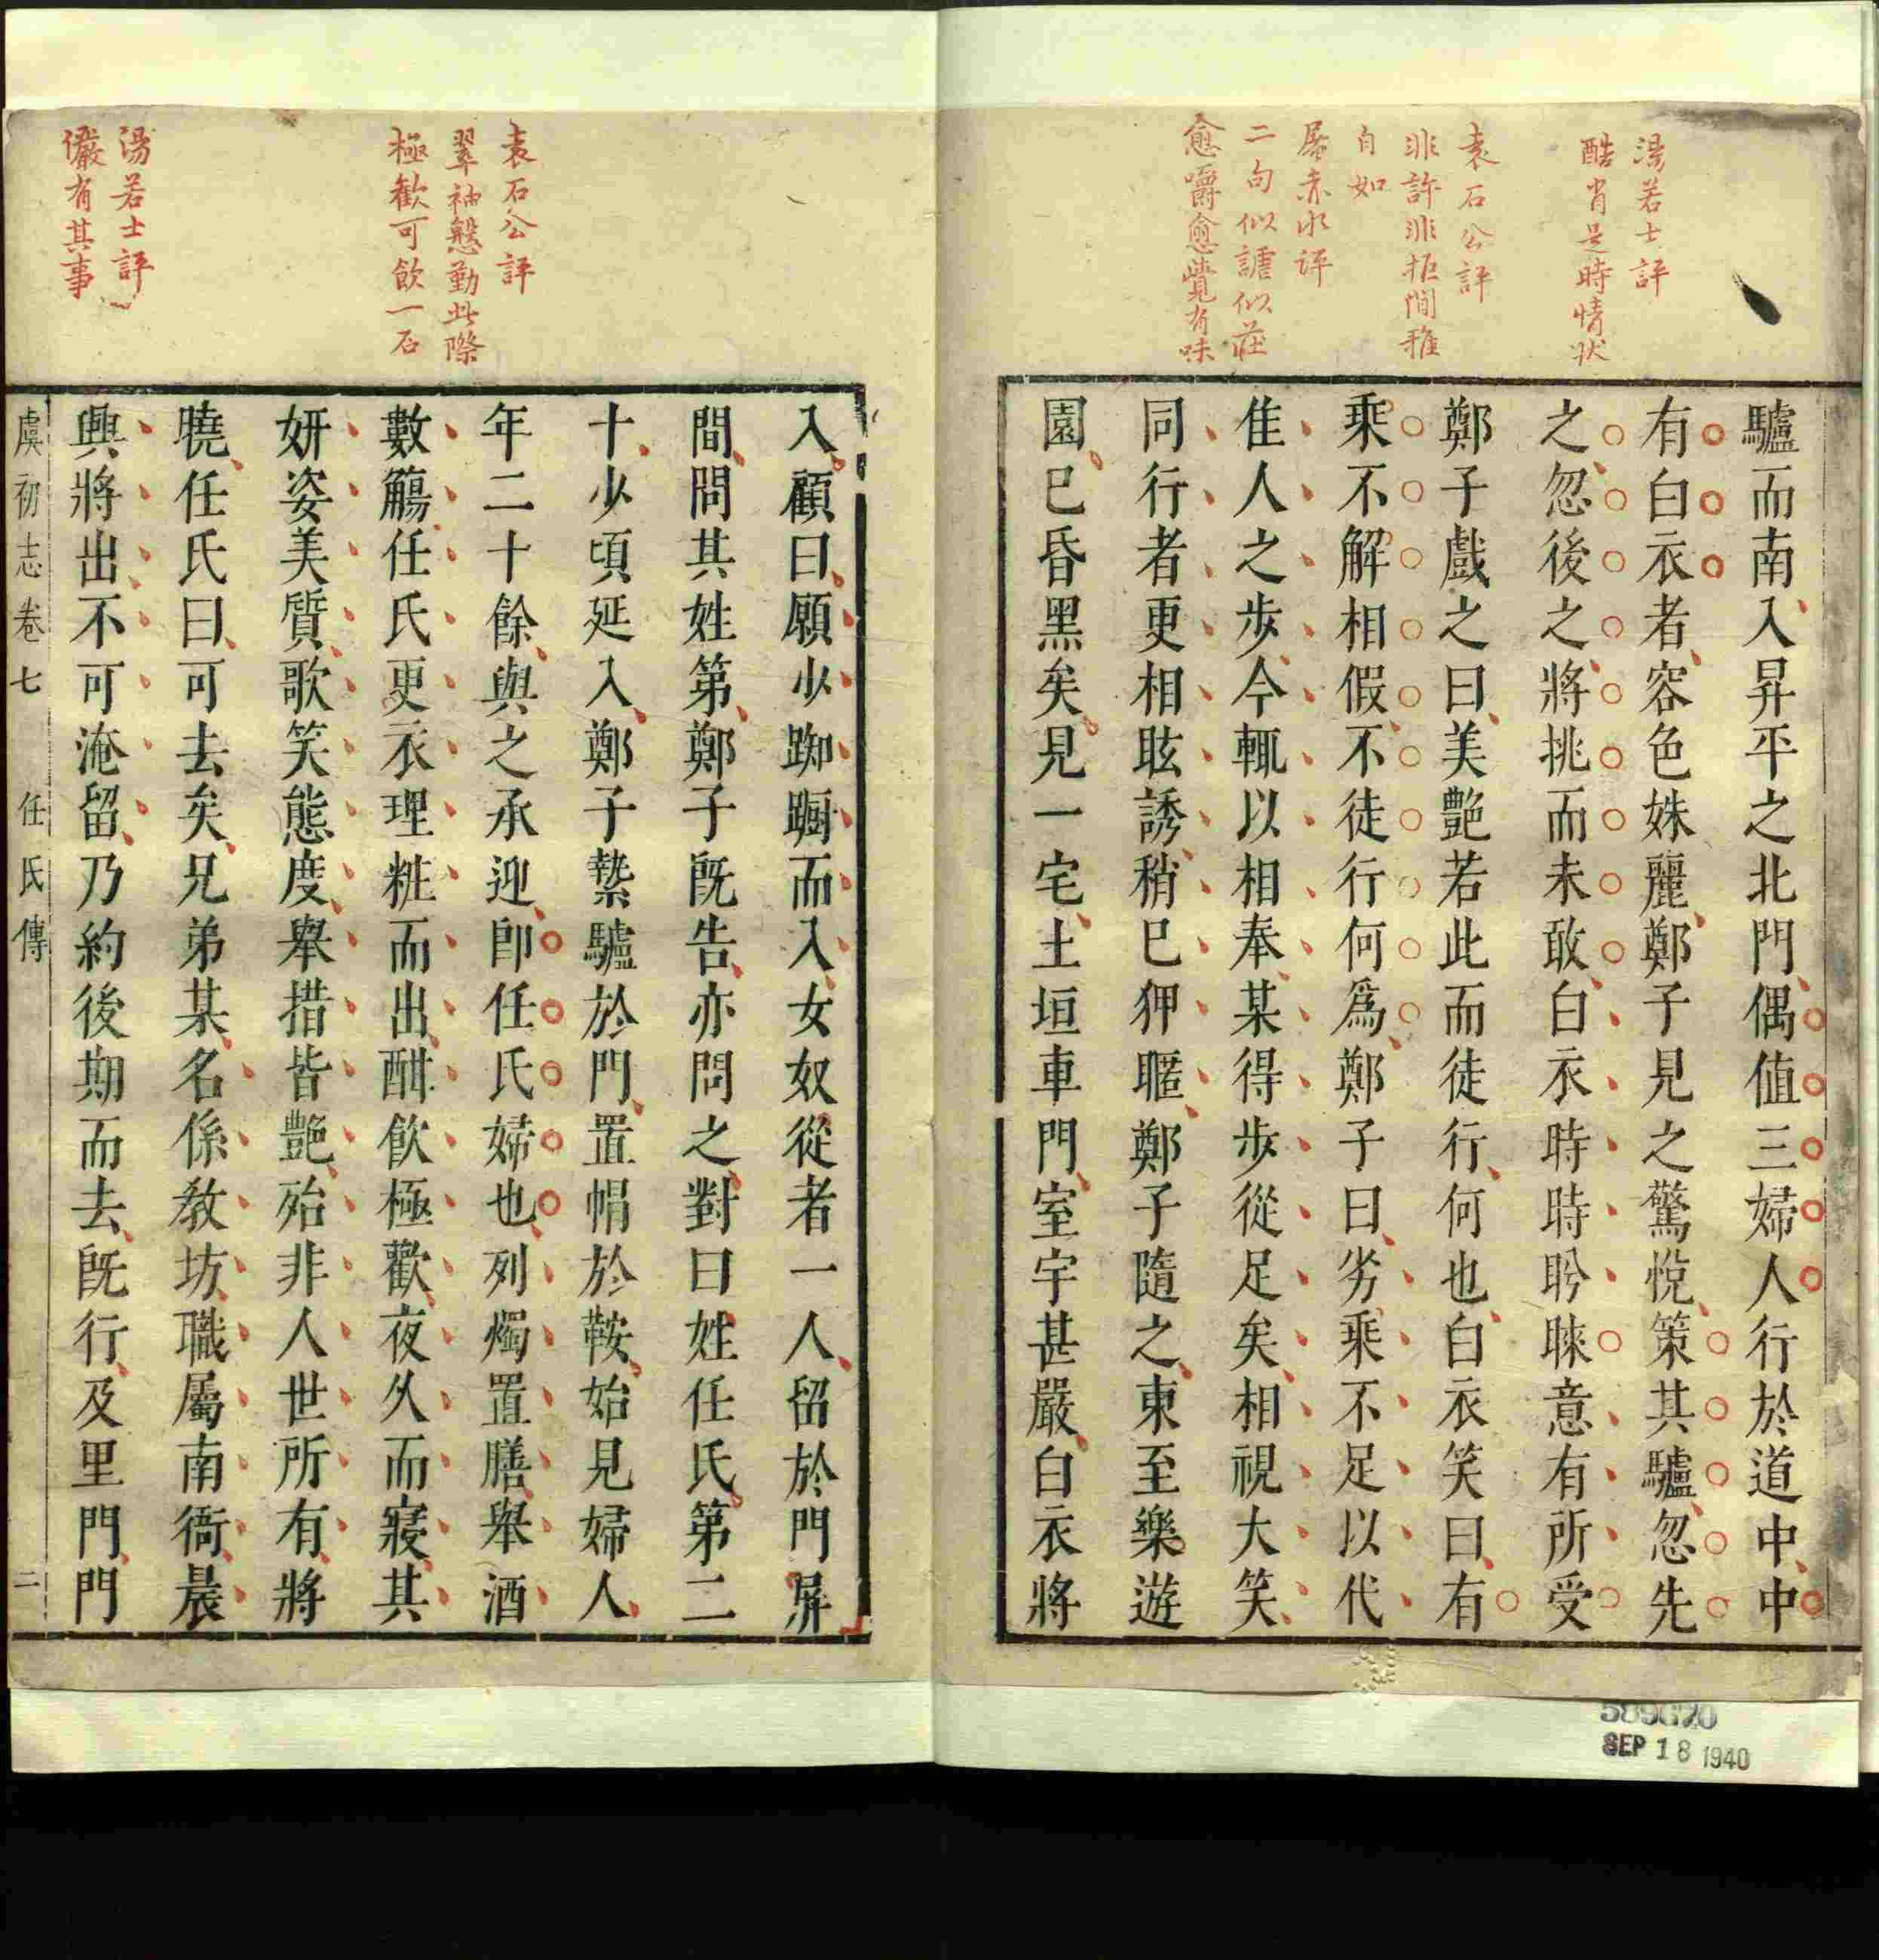 湯若士評
酷肖是時情狀
袁石公評
非許非拒閒雅
自如
屠赤水評
二句似謔似莊
愈嚼愈覺有味
驢而南入昇平之北門偶值三婦人行於道中中
有白衣者容色姝麗鄭子見之驚悅策其驢忽先
之忽後之將挑而未敢白衣時時盻睞意有所受
鄭子戲之曰美艷若此而徒行何也白衣笑曰有
乘不解相假不徒行何爲鄭子曰劣乘不足以代
佳人之步今輒以相奉某得步從足矣相視大笑
同行者更相眩誘稍已狎暱鄭子隨之東至樂遊
園已昏黑矣見一宅土垣車門室宇甚嚴白衣將
589620
SEP 18 1940
袁石公評
翠袖慇勤此際
極歡可飲一石
湯若士評
儼有其事
入顧曰願少踟躕而入女奴從者一人留於門屏
間問其姓第鄭子既告亦問之對曰姓任氏第二
十少頃延入鄭子縶驢於門置帽於鞍始見婦人
年二十餘與之承迎卽任氏婦也列燭置膳舉酒
數觴任氏更衣理粧而出酣飲極歡夜久而寢其
妍姿美質歌笑態度舉措皆艷殆非人世所有將
曉任氏曰可去矣兄弟某名係教坊職屬南衙晨
興將出不可淹留乃約後期而去既行及里門門
虞初志卷七 任氏傳 二